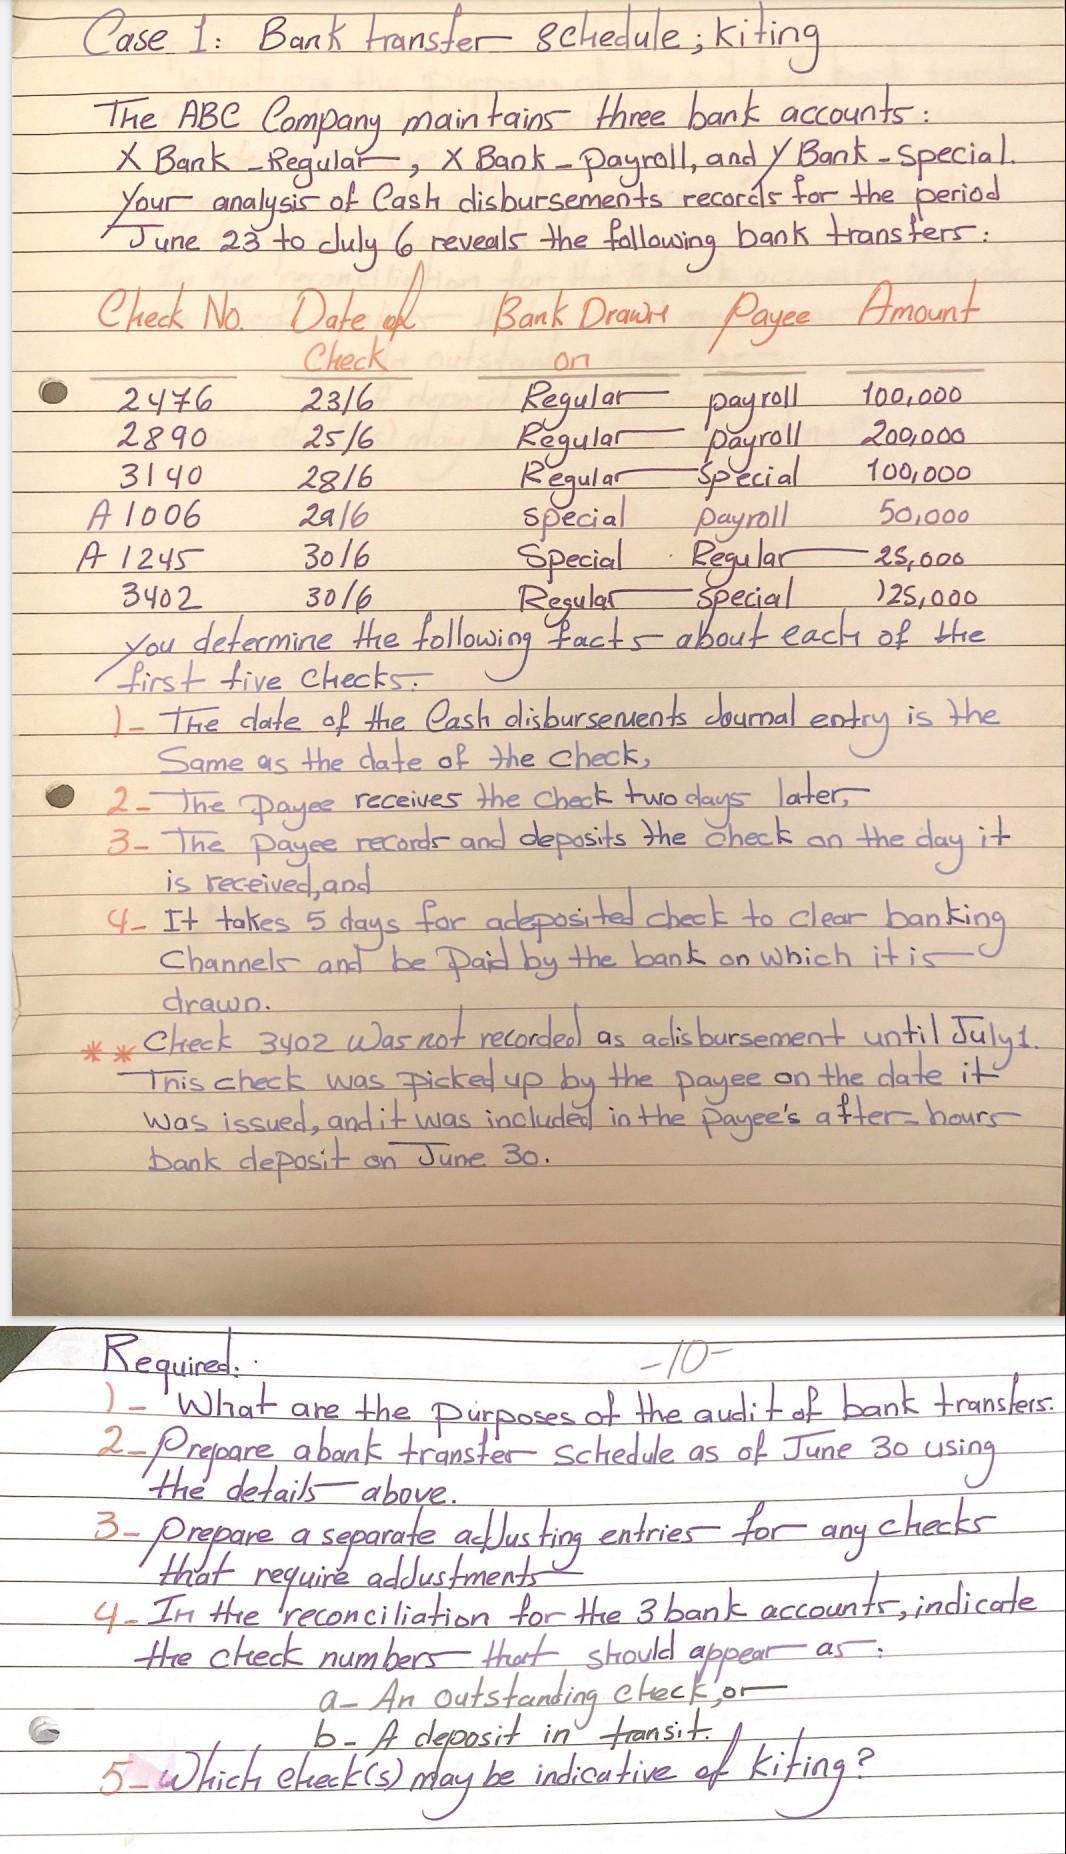 Case 1: Bank transfer schedule; kiting
The ABC Company maintains three bank accounts:
X Bank - Regular, X Bank - Payroll, and Y Bank - Special.
Your analysis of Cash disbursements records for the period
June 23 to July 6 reveals the following bank transfers:
Check No. Date of Bank Drawn Payee Amount
Check on
2476 23/6 Regular payroll 100,000
2890 25/6 Regular payroll 200,000
3140 28/6 Regular special 100,000
A 1006 29/6 special payroll 50,000
A 1245 30/6 Special Regular 25,000
3402 30/6 Regular special 125,000
you determine the following facts about each of the
first five checks:
1- The date of the Cash disbursements Journal entry is the
Same as the date of the check,
2- The payee receives the check two days later,
3- The payee records and deposits the check on the day it
is received, and
4- It takes 5 days for a deposited check to clear banking
Channels and be paid by the bank on which it is
drawn.
** Check 3402 was not recorded as a disbursement until July 1.
This check was picked up by the payee on the date it
was issued, and it was included in the payee's after-hours
bank deposit on June 30.
Required:
-10-
1- What are the purposes of the audit of bank transfers.
2- Prepare a bank transfer schedule as of June 30 using
the details above.
3- Prepare a separate adjusting entries for any checks
that require addustments
4- In the reconciliation for the 3 bank accounts, indicate
the check numbers that should appear as:
a- An outstanding check, or
b- A deposit in transit.
5- Which check(s) may be indicative of kiting?